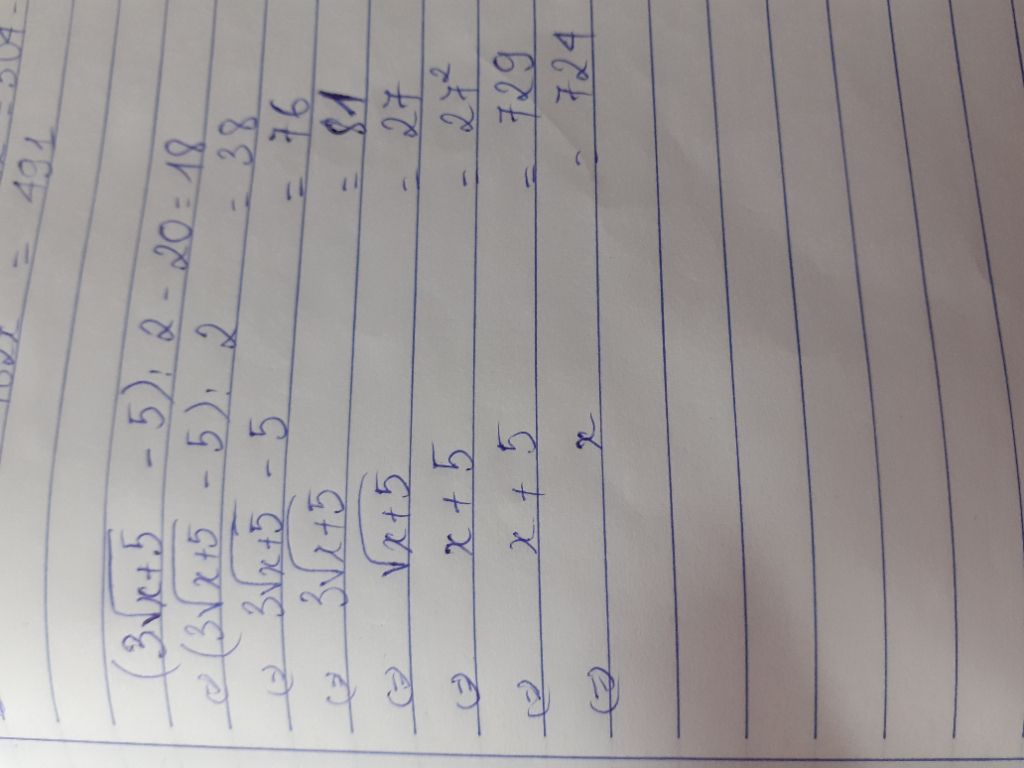 = 491
(3√x+5 - 5) : 2 - 20 = 18
(=) (3√x+5 - 5) : 2 = 38
(=) 3√x+5 - 5 = 76
(=) 3√x+5 = 81
(=) √x+5 = 27
(=) x + 5 = 27²
(=) x + 5 = 729
(=) x = 724